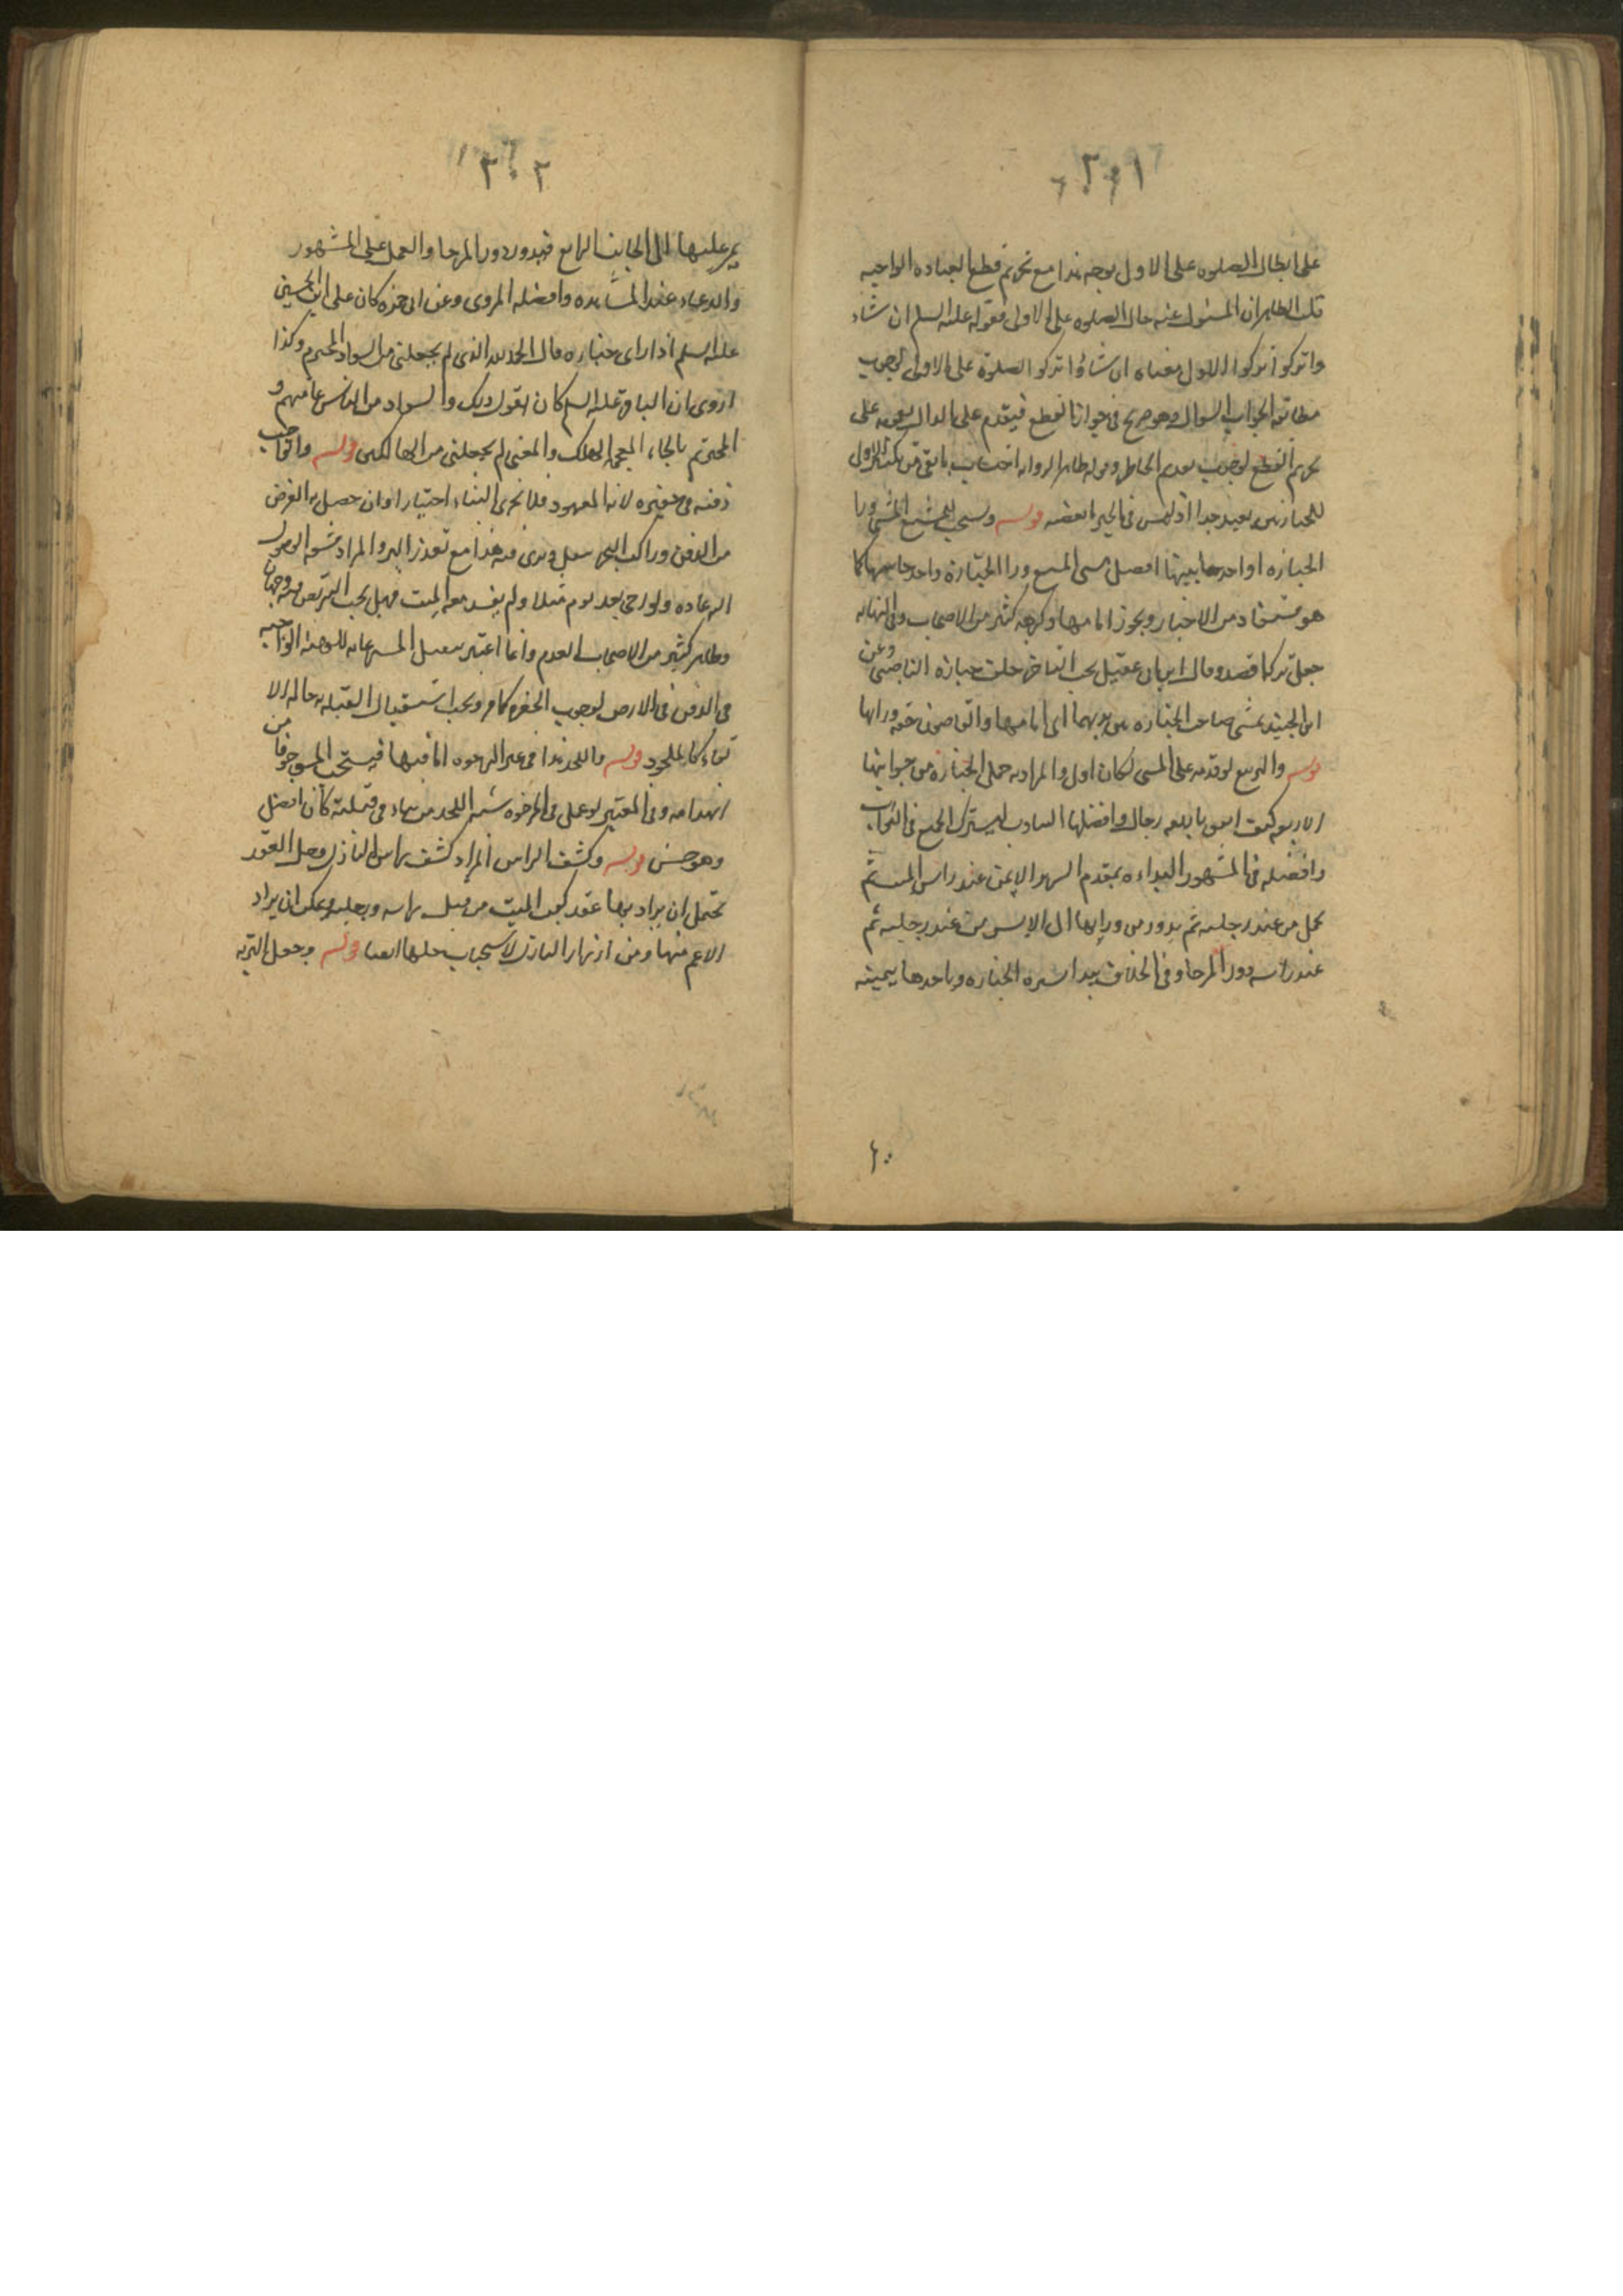 ٢٠١
على ابطال الصلوه على الاول بوجه هذا مع تحريم قطع العباده الواجبه
قلت الظاهر ان المسئول عنه حال الصلوه على الاولى فقوله عليه السلم ان شاء
واتركوا الاول معناه ان شاؤا تركوا الصلوة على الاولى لوجوب
مطابقه الجواب السوال وهو صريح في جواز القطع فيقدم على الدال بعمومه على
تحريم القطع لوجوب تقديم الخاص وقوله ظاهر الروايه احتساب ما بقى من تكبير الاول
للجنازتين بعيد جدا اذ ليس في الخبر ما يقتضيه قوله ويستحب للمشيع المشي ورا
الجنازه او احد جانبيها افضل مشى المشيع ورا الجنازة واحد جانبيها كما
هو مستفاد من الاخبار ويجوز امامها وكرهه كثير من الاصحاب وفى النهايه
جعل تركها قصد وقال ابن ابى عقيل يجب التاخر خلف جنازة الناصبى وعن
ابن الجنيد يمشى صاحب الجنازه بين يديها اى امامها والقاضون حقه وراها
قوله والتربيع لو قدمه على المشى لكان اولى والمراد به حمل الجنازه من جوانبها
الاربعه كيف اتفق باربعه رجال وافضلها التناوب ليشترك الجميع في الثواب
وافضله في المشهور البداءه بمقدم السرير الايمن عند راس الميت ثم
يحمل من عند رجليه ثم يدور من ورايها الى الايسر من عند رجليه ثم
عند راسه دور الرحا وفى الخلاف يبدا بميسره الجنازه وياخدها بيمينه
٢٠٢
يمر عليها الى الجانب الرابع فيدور دور الرحا والعمل على المشهور
والدعاء عند المشاهده وافضله المروى وعن ابى حمزه كان على ابن الحسين
عليه السلم اذا راى جنازه قال الحمد لله الذى لم يجعلنى من السواد المخترم وكذا
روى ان الباقر عليه السلم كان يقول ذلك والسواد من الناس عامتهم و
المخترم بالخاء المعجمه الهالك والمعنى لم يجعلنى من الهالكين قوله والواجب
دفنه في حفيره لانه المعهود فلا تجزى البناء اختيارا وان حصل به الغرض
من الدفن وراكب البحر يثقل ويرمى فيه هذا مع تعذر البر والمراد مشقه الوصول
اليه عاده ولو رجى بعد يوم مثلا ولم يفسد معه الميت فهل يجب التربص فيه وجهان
وظاهر كثير من الاصحاب العدم وانما اعتبر تثقيل الميت رعايه للوظيفه الواجبه
في الدفن في الارض لوجوب الحفره كما مر ويجب استقبال القبله به حالة الا
لقاء كالملحود قوله واللحد هذا في غير الرخوه اما فيها فيستحب الشق خوفا من
انهدامه وفى المعتبر لو عمل في الرخوه شبه اللحد من بناء في قبلته كان افضل
وهو حسن قوله وكشف الراس المراد كشف راس النازل وحل العقد
يحتمل ان يراد بها عقد كفن الميت من قبل راسه ورجليه ويمكن ان يراد
الاعم منها ومن ازرار النازل لاستحباب حلها ايضا قوله وجعل التربه